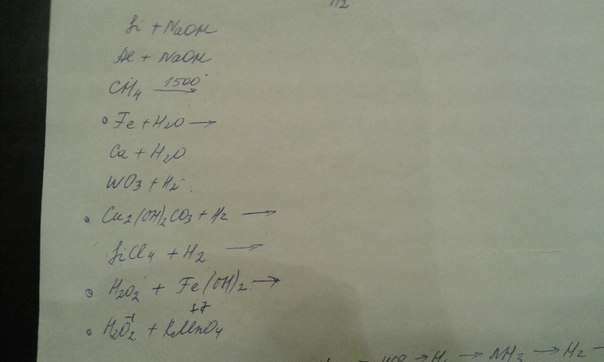 H2
Si + NaOH
Al + NaOH
CH4 1500° →
Fe + H2O →
Ca + H2O
WO3 + H2
Cu2(OH)2CO3 + H2 →
SiCl4 + H2 →
H2O2 + Fe(OH)2 →
H2O2 -1 + KMnO4 +7
→ H2 → NH3 → H2 —